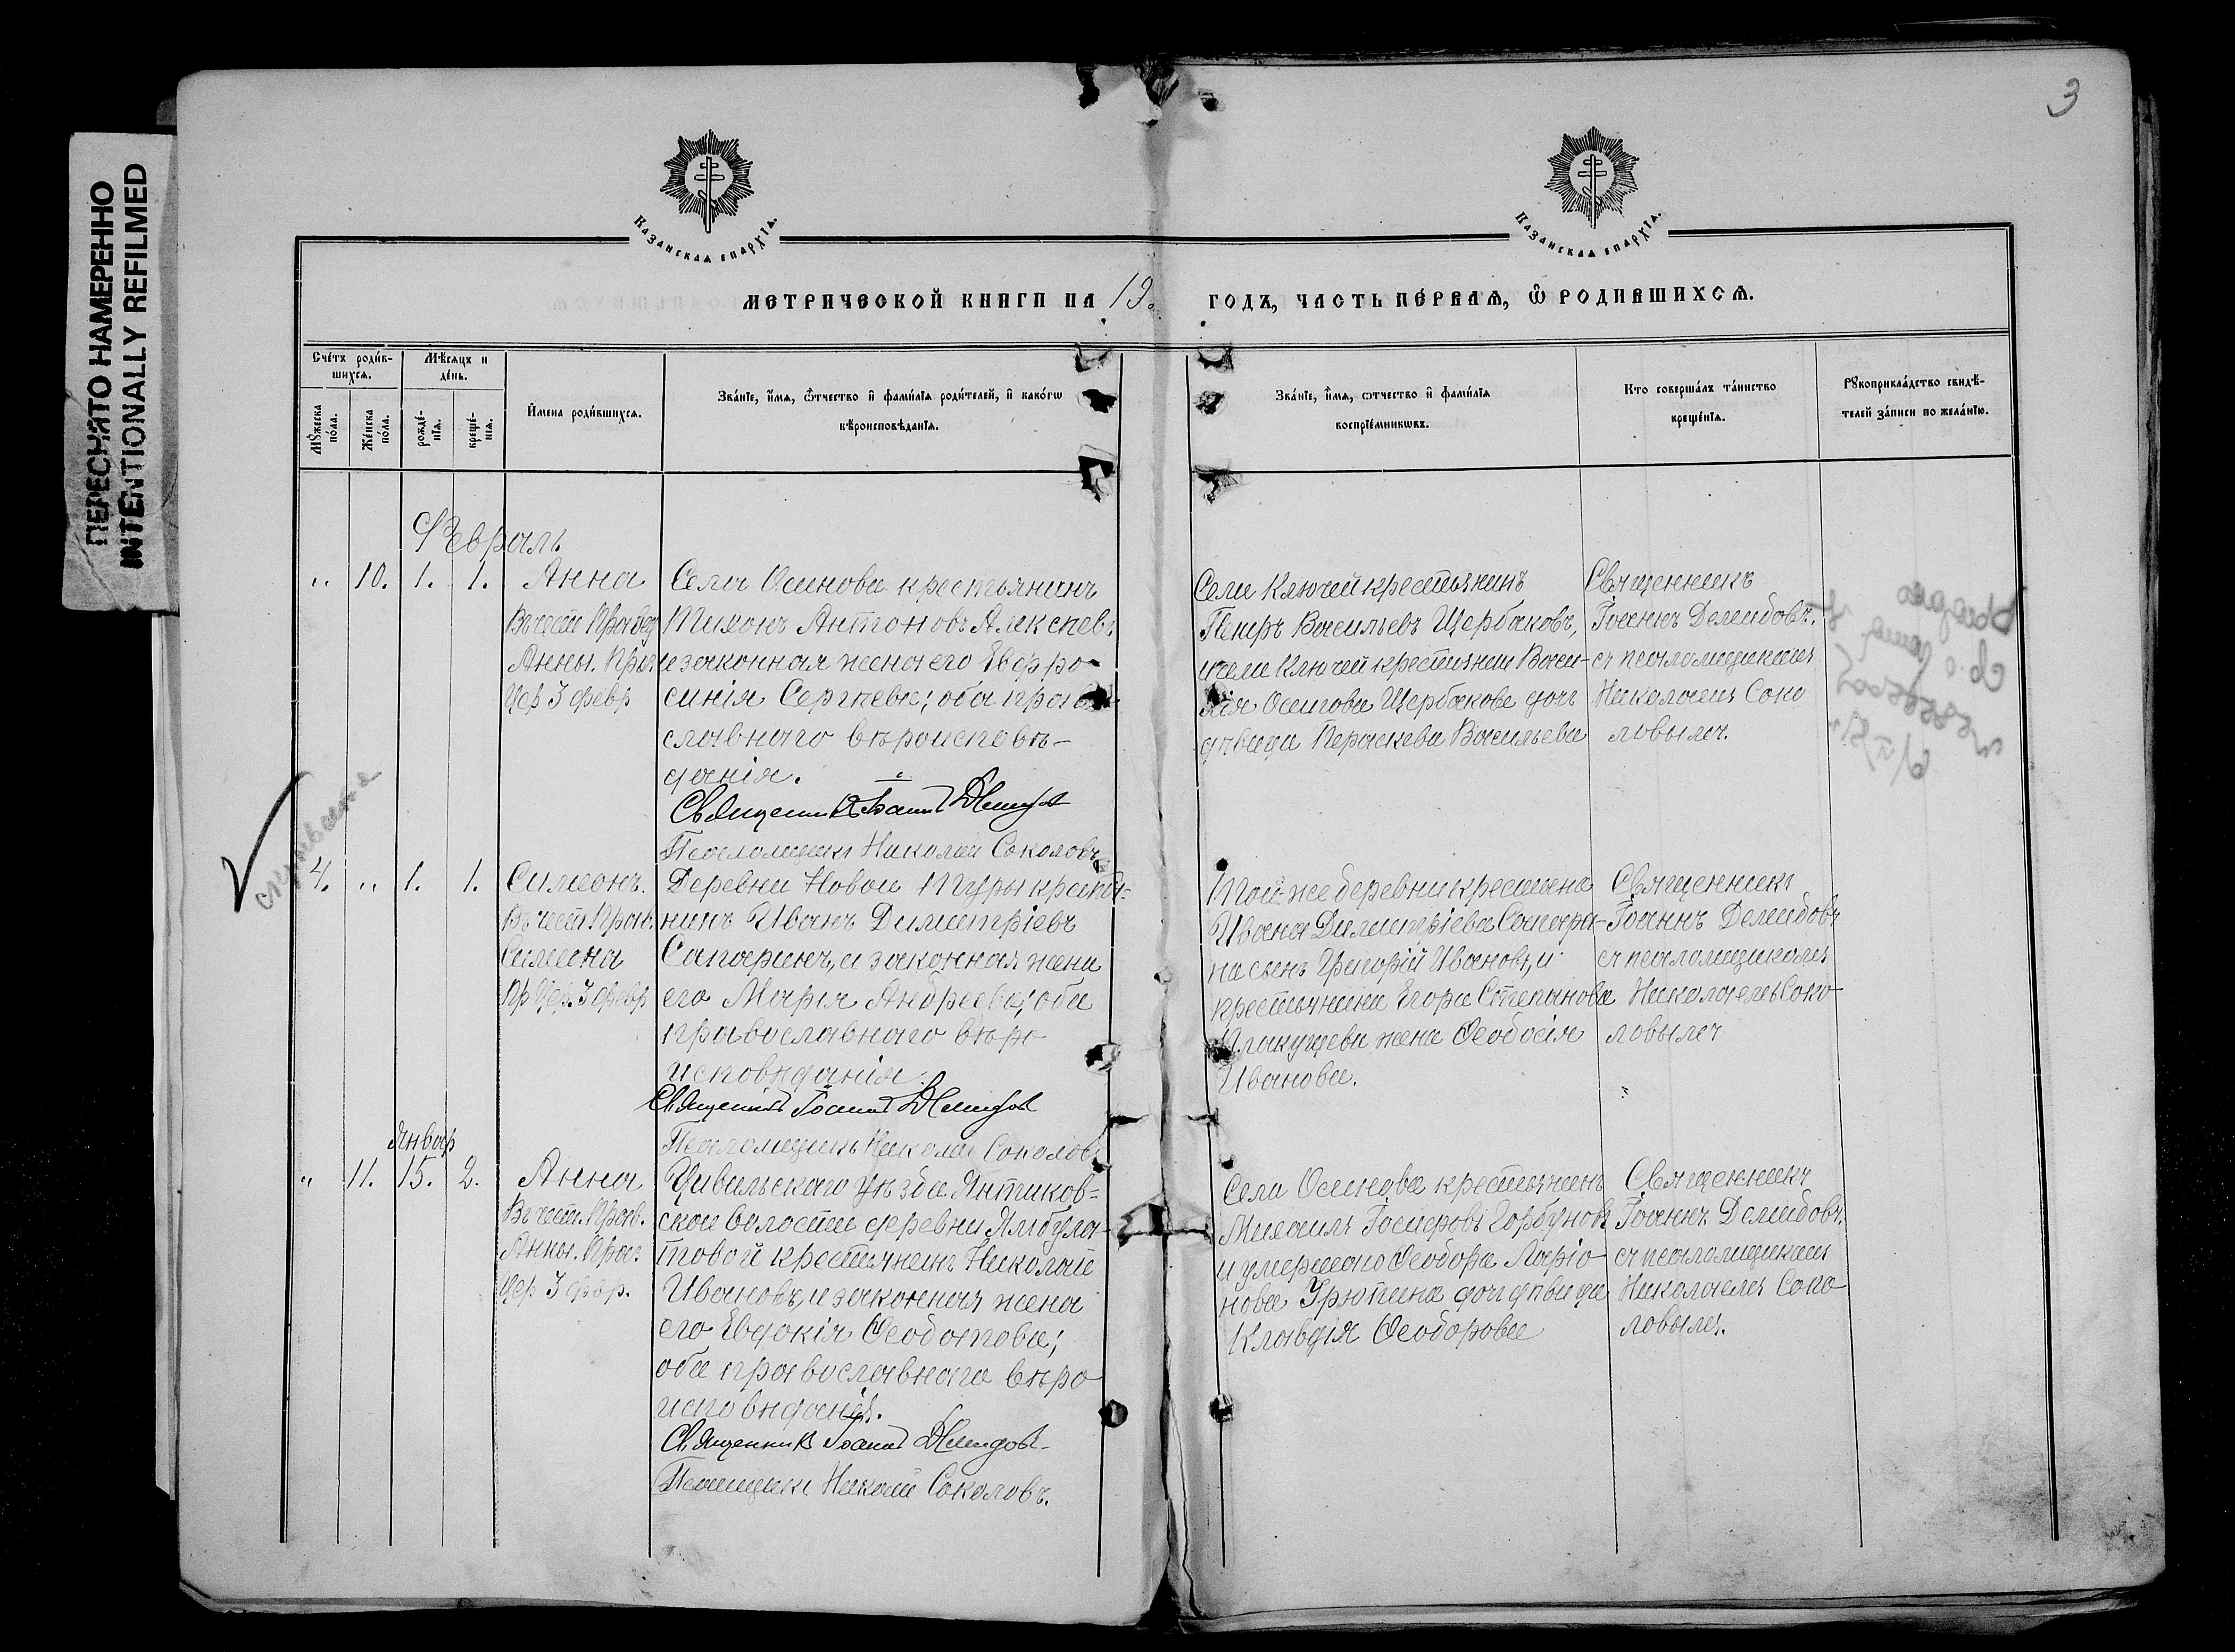 3
ПЕРЕСНЯТО НАМЕРЕННО
INTENTIONALLY REFILMED
Казанская епархїа.
Казанская епархїа.
МЕТРИЧЕСКОЙ КНИГИ НА 19 ГОДЪ, ЧАСТЬ ПЕРВАЯ, Ѡ РОДИВШИХСЯ.
Счетъ родив-
шихся.
Мꙋжеска
пола.
Женска
пола.
Мѣсяцъ и
день.
рожде-
нїя.
креще-
нїя.
Имена родившихся.
Званїе, имя, ѿчество и фамилїя родителей, и какогѡ
вѣроисповѣданїя.
Званїе, имя, отчество и фамилїя
воспрїемникѡвъ.
Кто совершалъ таинство
крещенїя.
Рꙋкоприкладство свидѣ-
телей записи по желанїю.
Февраль
" 10. 1. 1.
Анна
Въ честь Правед
Анны. Праз
Цер 3 февр
Села Осинова крестьянинъ
Тихонъ Антоновъ Алексѣевъ
и законная жена его Евфро-
синія Сергѣева; оба право-
славнаго вѣроисповѣ-
данія.
Священникъ Іоаннъ Демидовъ
Псаломщикъ Николай Соколовъ
Села Ключей крестьянинъ
Петръ Васильевъ Щербаковъ,
и села Ключей крестьянина Васи-
лія Осипова Щербакова дочь
дѣвица Параскева Васильева
Священникъ
Іоаннъ Демидовъ.
съ псаломщикомъ
Николаемъ Соко
ловымъ.
4. " 1. 1.
Симеонъ.
Въ честь Прав.
Симеона
Пр Цер. 3 февр
Деревни Новой Туры крестья-
нинъ Иванъ Димитріевъ
Сапаринъ, и законная жена
его Марія Андреева; оба
православнаго вѣро
исповѣданія.
Священникъ Іоаннъ Демидовъ
Псаломщикъ Николай Соколовъ
Той-же деревни крестьяна
Ивана Димитріева Сапари-
на сынъ Григорій Ивановъ, и
крестьянина Егора Степанова
жена Ѳеодосія
Иванова.
Священникъ
Іоаннъ Демидовъ
съ псаломщикомъ
Николаемъ Соко-
ловымъ
Январ
" 11. 15. 2.
Анна
Въ чест. Прав.
Анны. Праз.
Цер 3 фвр.
Цивильскаго уѣзда Янтиков-
ской волости деревни Ямбула-
товой крестьянинъ Николай
Ивановъ, и законная жена
его Евдокія Ѳеодотова;
оба православнаго вѣро
исповѣданія.
Священникъ Іоаннъ Демидовъ
Псаломщикъ Николай Соколовъ.
Села Осинова крестьянинъ
Михаилъ Горбуновъ
и умершаго Ѳеодора Ларіо-
нова Урютина дочь дѣвица
Клавдія Ѳеодорова
Священникъ
Іоаннъ Демидовъ.
съ псаломщикомъ
Николаемъ Соко
ловымъ.